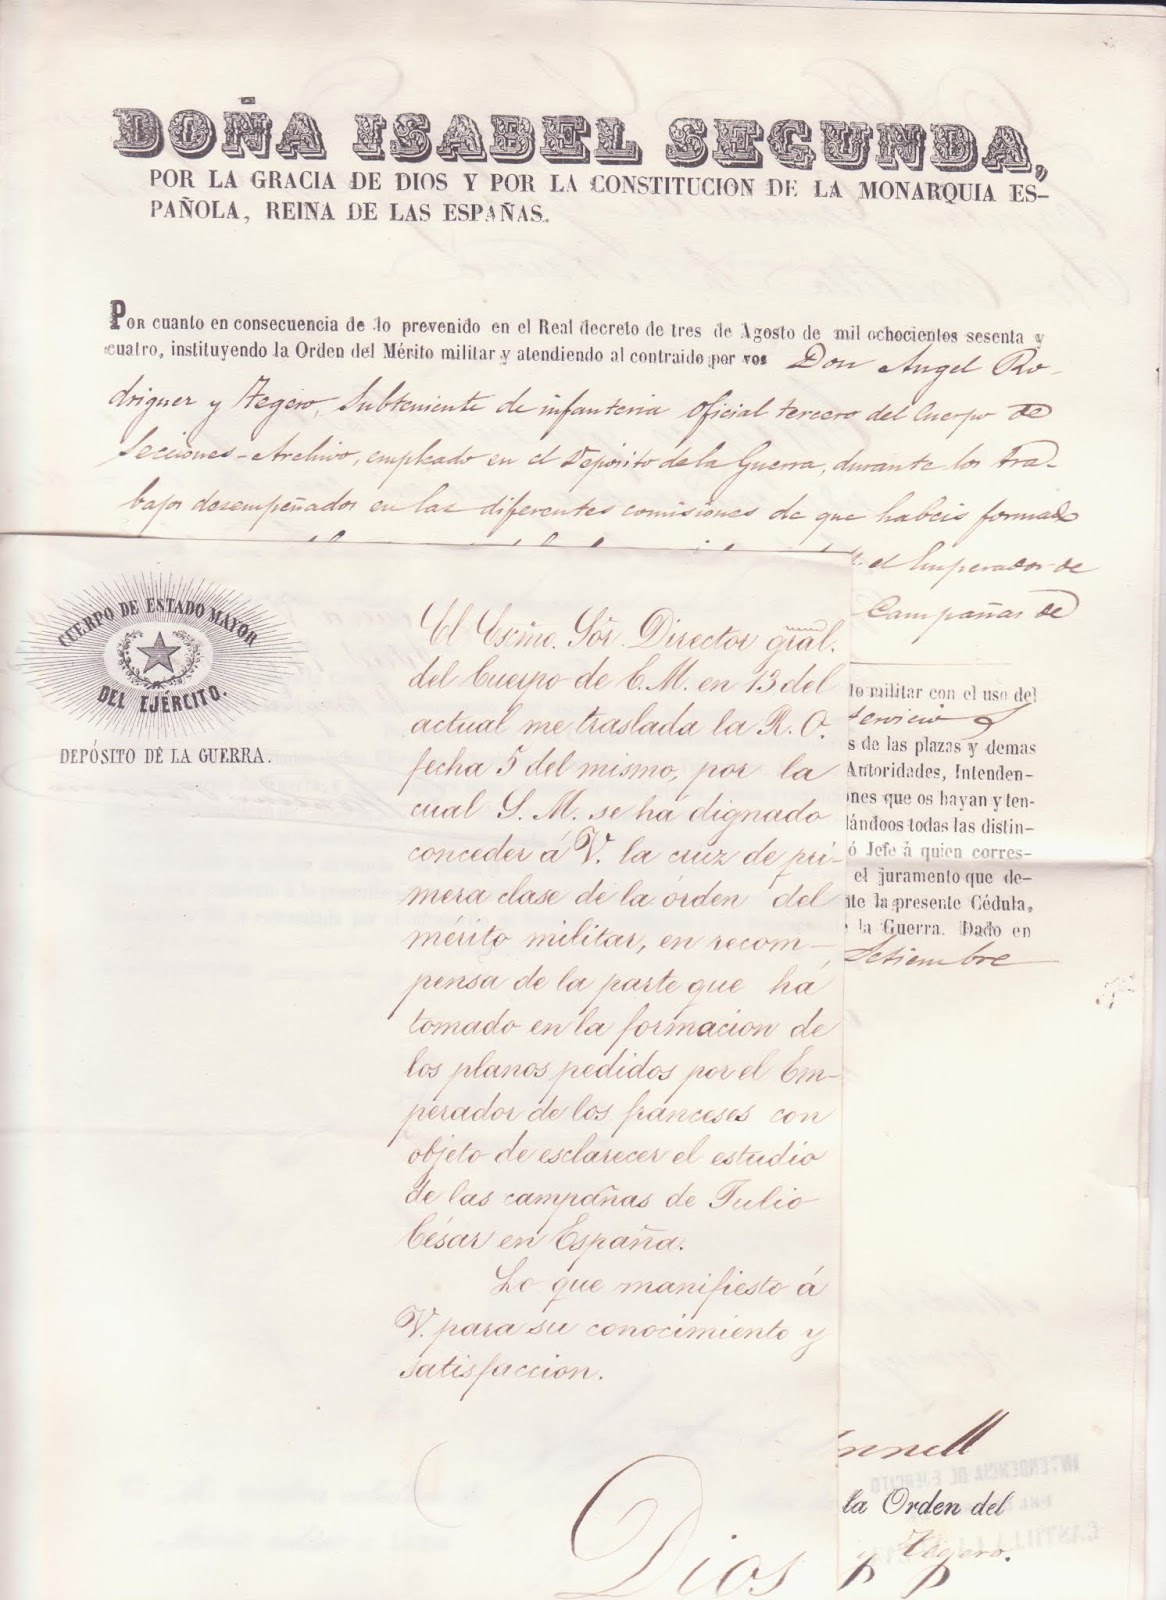 DOÑA ISABEL SEGUNDA,
POR LA GRACIA DE DIOS Y POR LA CONSTITUCION DE LA MONARQUIA ES-
PAÑOLA, REINA DE LAS ESPAÑAS.
POR cuanto en consecuencia de lo prevenido en el Real decreto de tres de Agosto de mil ochocientos sesenta y
cuatro, instituyendo la Orden del Mérito militar y atendiendo al contraido por vos Don Angel Ro-
driguez y Tegero, Subteniente de infanteria Oficial tercero del Cuerpo de
Secciones-Archivo, empleado en el Depósito de la Guerra, durante los tra-
bajos desempeñados en las diferentes comisiones de que habeis formado
el Emperador de
Campañas de
to militar con el uso del
servicio
s de las plazas y demas
Autoridades, Intenden-
ones que os hayan y ten-
dándoos todas las distin-
ó Jefe á quien corres-
el juramento que de-
nte la presente Cédula,
e la Guerra. Dado en
Setiembre
CUERPO DE ESTADO MAYOR
DEL EJÉRCITO.
DEPÓSITO DE LA GUERRA.
El Escmo. Sór. Director gral.
del Cuerpo de E.M. en 13 del
actual me traslada la R.O.
fecha 5 del mismo, por la
cual S.M. se há dignado
conceder á V. la cruz de pri-
mera clase de la órden del
mérito militar, en recom-
pensa de la parte que há
tomado en la formacion de
los planos pedidos por el Em-
perador de los franceses con
objeto de esclarecer el estudio
de las campañas de Julio
César en España.
Lo que manifiesto á
V. para su conocimiento y
satisfaccion.
Dios
nnell
la Orden del
y Tegero.